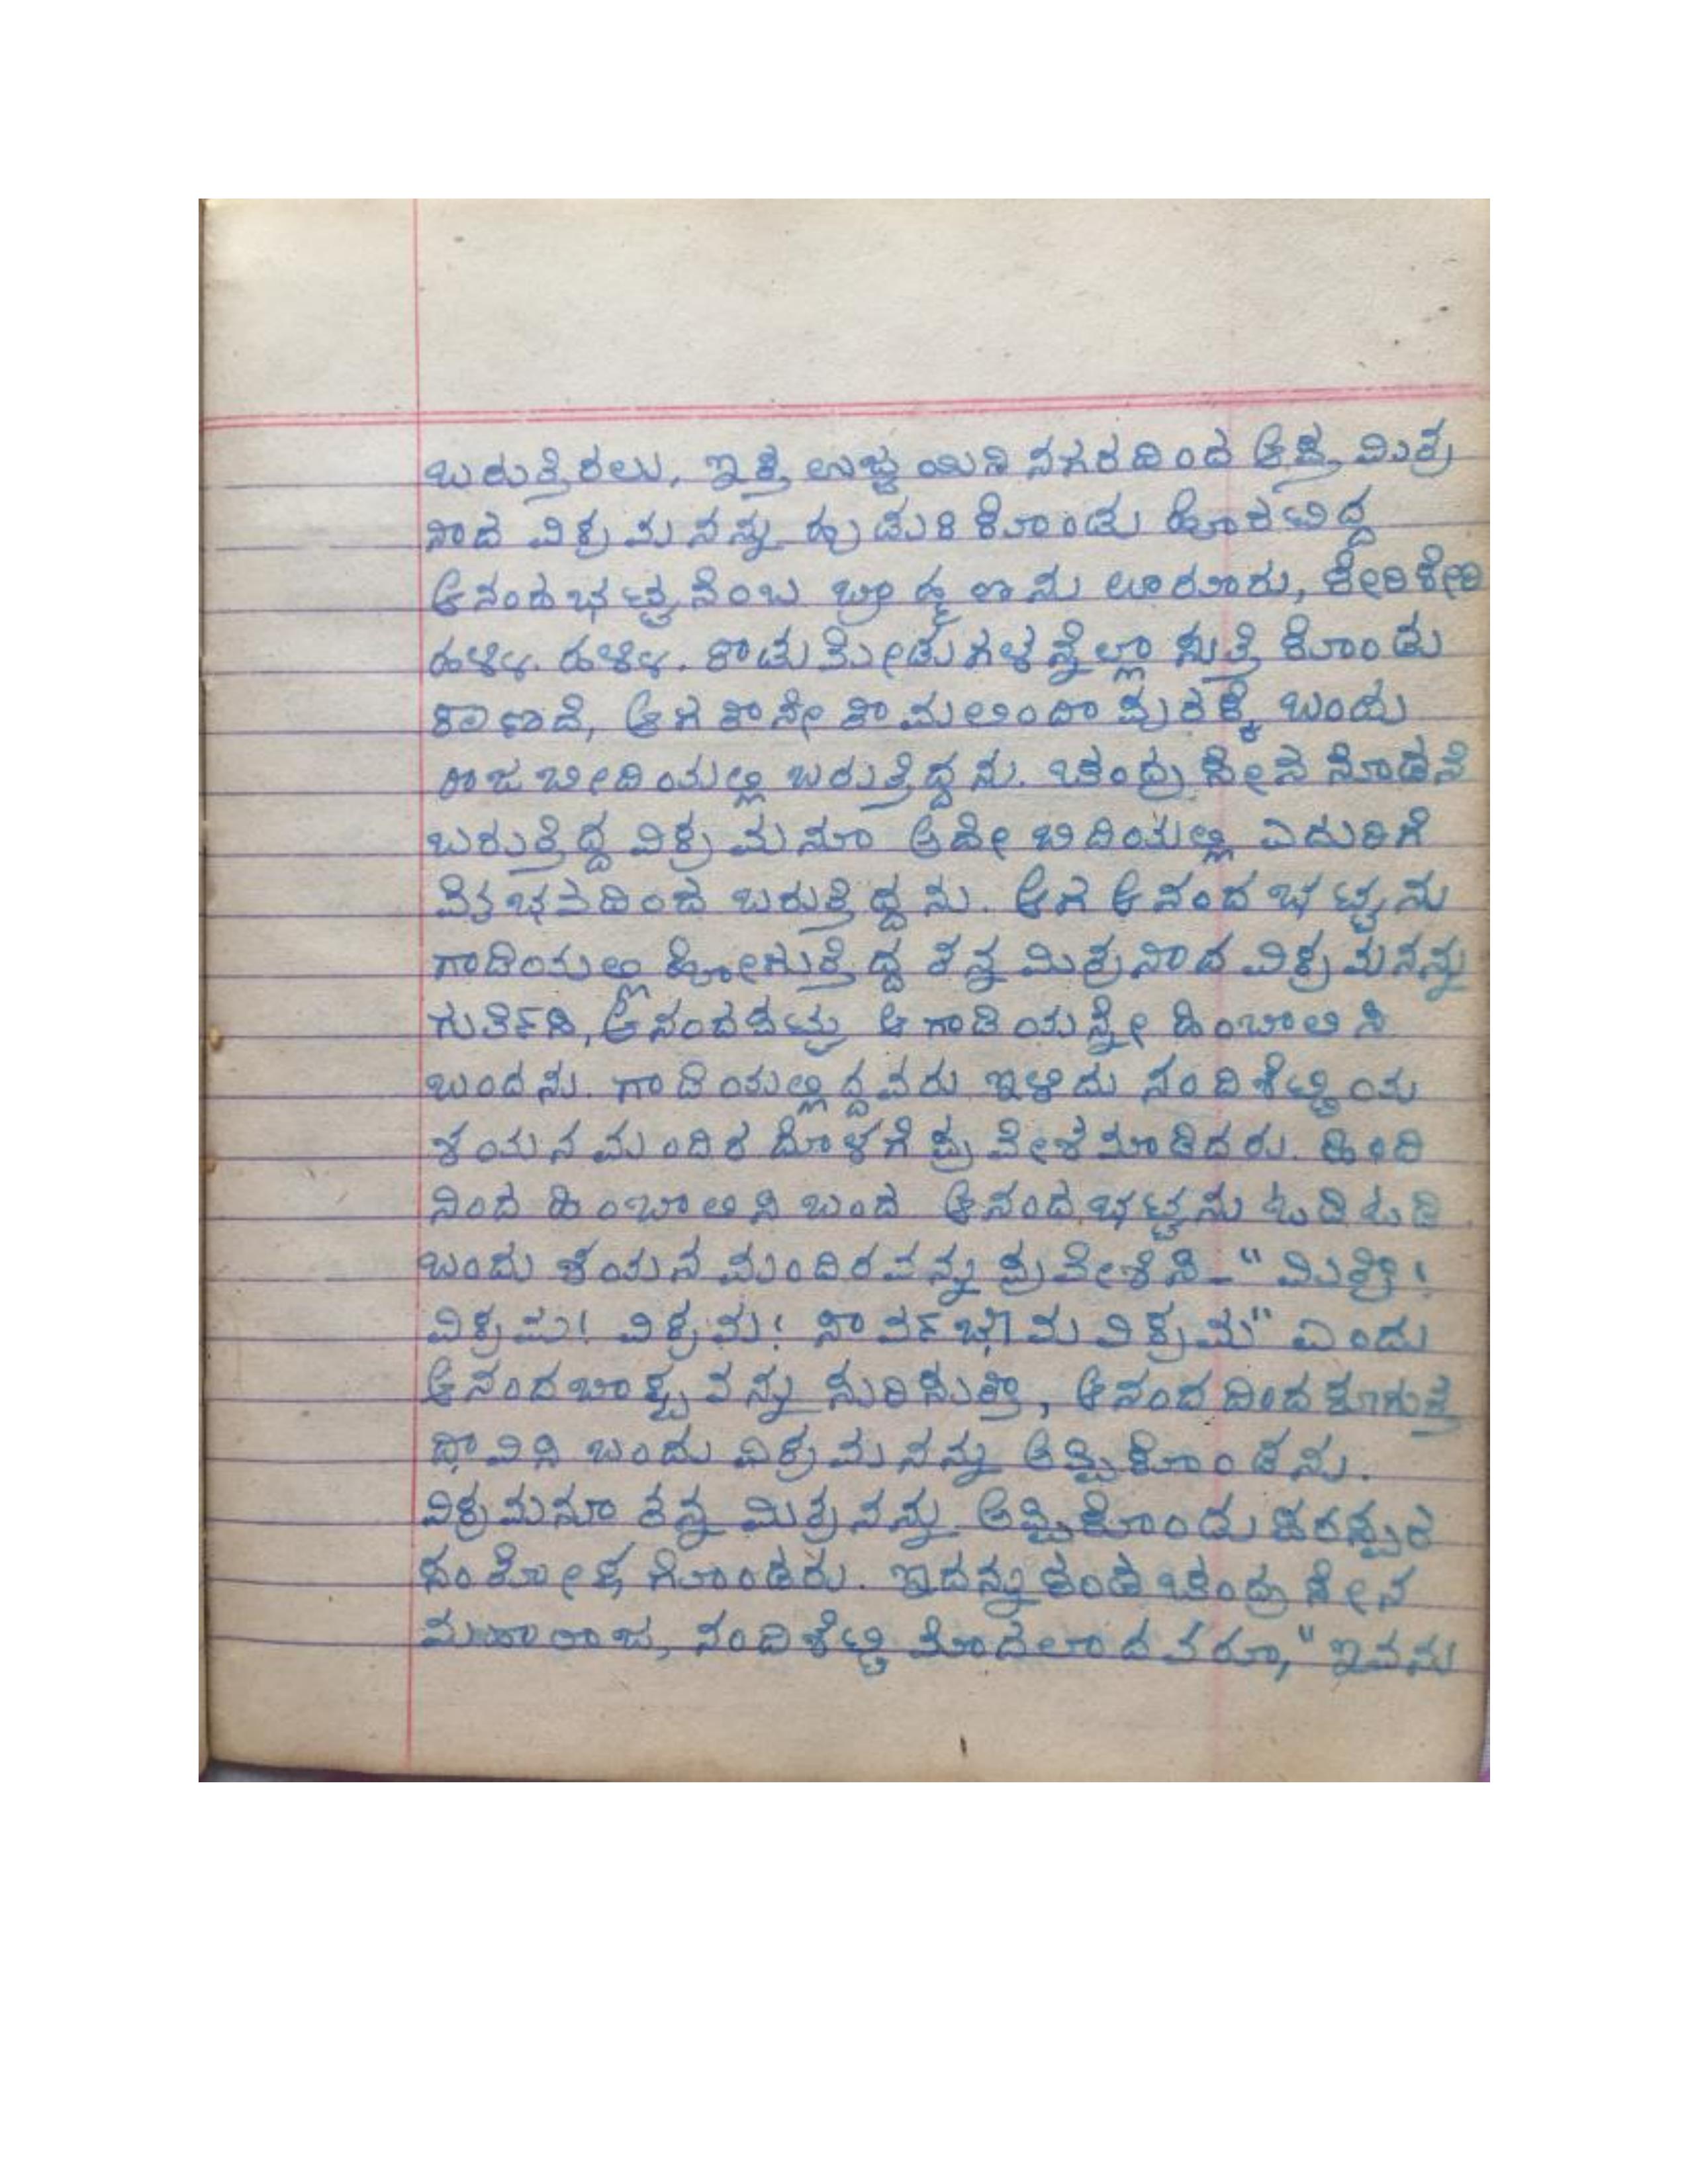 ಬರುತ್ತಿರಲು, ಇತ್ತ ಉಜ್ಜಯಿನಿ ನಗರದಿಂದ ಆಪ್ತ ಮಿತ್ರ
ನಾದ ವಿಕ್ರಮನನ್ನು ಹುಡುಕಿಕೊಂಡು ಹೊರಟಿದ್ದ
ಆನಂದಭಟ್ಟನೆಂಬ ಬ್ರಾಹ್ಮಣನು ಊರೂರು, ಕೇರಿಕೇರಿ
ಹಳ್ಳಿ. ಹಳ್ಳಿ. ಕಾಡುಮೇಡುಗಳನ್ನೆಲ್ಲಾ ಸುತ್ತಿಕೊಂಡು
ಕಾಣದೆ, ಆಗ ತಾನೇ ತಾಮಲಿಂದಾಪುರಕ್ಕೆ ಬಂದು
ರಾಜಬೀದಿಯಲ್ಲಿ ಬರುತ್ತಿದ್ದನು. ಚಂದ್ರಸೇನನೊಡನೆ
ಬರುತ್ತಿದ್ದ ವಿಕ್ರಮನೂ ಅದೇ ಬಿದಿಯಲ್ಲಿ ಎದುರಿಗೆ
ವೈಭವದಿಂದ ಬರುತ್ತಿದ್ದನು. ಆಗ ಆನಂದಭಟ್ಟನು
ಗಾಡಿಯಲ್ಲಿ ಹೋಗುತ್ತಿದ್ದ ತನ್ನ ಮಿತ್ರನಾದ ವಿಕ್ರಮನನ್ನು
ಗುರ್ತಿಸಿ, ಆ ಗಾಡಿಯನ್ನೇ ಹಿಂಬಾಲಿಸಿ
ಬಂದನು. ಗಾಡಿಯಲ್ಲಿದ್ದವರು ಇಳಿದು ನಂದಿಶೆಟ್ಟಿಯ
ಶಯನಮಂದಿರದೊಳಗೆ ಪ್ರವೇಶಮಾಡಿದರು. ಹಿಂದಿ
ನಿಂದ ಹಿಂಬಾಲಿಸಿ ಬಂದ ಆನಂದಭಟ್ಟನು ಓಡಿಓಡಿ
ಬಂದು ಶಯನಮಂದಿರವನ್ನು ಪ್ರವೇಶಿಸಿ-"ಮಿತ್ರಾ!
ವಿಕ್ರಮ! ವಿಕ್ರಮ! ಸಾರ್ವಭೌಮ ವಿಕ್ರಮ" ಎಂದು
ಆನಂದಬಾಷ್ಪವನ್ನು ಸುರಿಸುತ್ತಾ, ಆನಂದದಿಂದ ಕೂಗುತ್ತ
ಧಾವಿಸಿ ಬಂದು ವಿಕ್ರಮನನ್ನು ಅಪ್ಪಿಕೊಂಡನು.
ವಿಕ್ರಮನೂ ತನ್ನ ಮಿತ್ರನನ್ನು ಅಪ್ಪಿಕೊಂಡು ಪರಸ್ಪರ
ಸಂತೋಷಗೊಂಡರು. ಇದನ್ನು ಕಂಡ ಚಂದ್ರಸೇನ
ಮಹಾರಾಜ, ನಂದಿಶೆಟ್ಟಿ ಮೊದಲಾದವರೂ, "ಇವನು